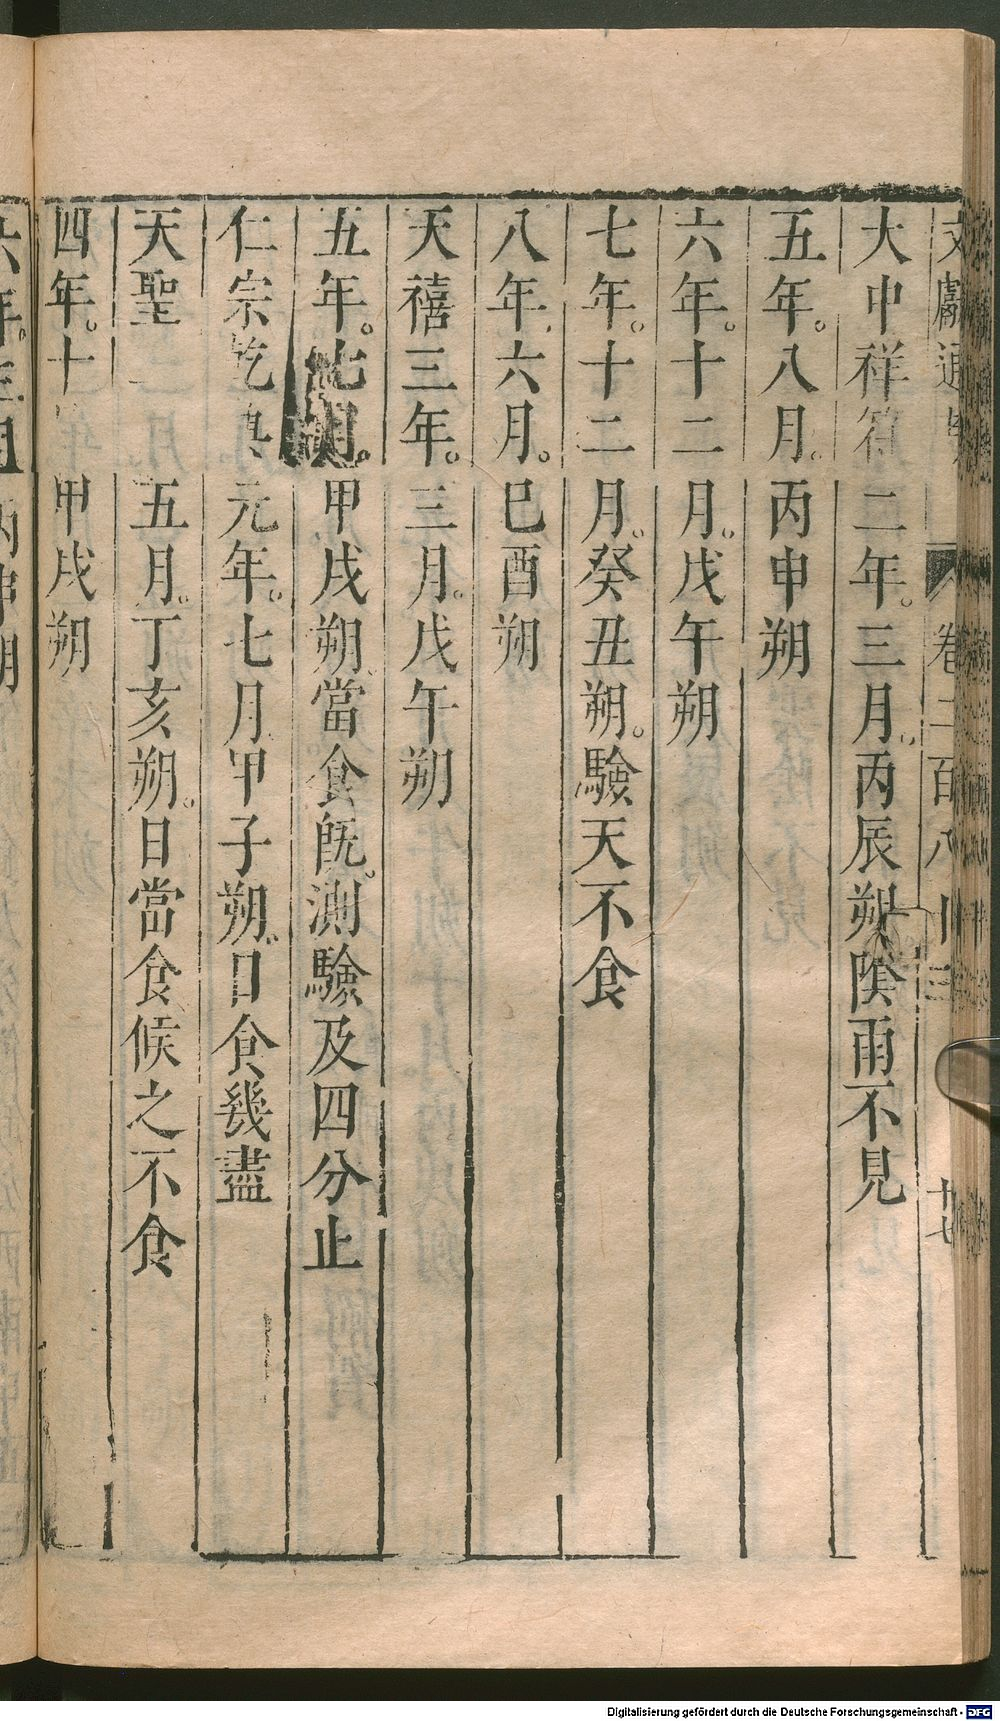 文獻通
卷二百八十三
十七
大中祥符二年三月丙辰朔陰雨不見
五年八月丙申朔
六年十二月戊午朔
七年十二月癸丑朔驗天不食
八年六月己酉朔
天禧三年三月戊午朔
五年七月甲戌朔當食旣測驗及四分止
仁宗乾興元年七月甲子朔日食幾盡
天聖二年五月丁亥朔日當食候之不食
四年十 甲戌朔
六年三月丙申朔
Digitalisierung gefördert durch die Deutsche Forschungsgemeinschaft - DFG